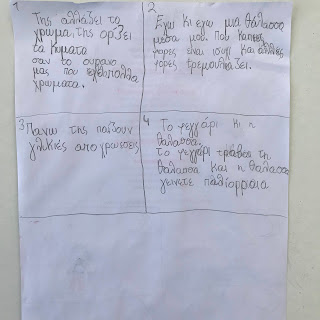 1
Της αλλάζει το
χρωμα, της ορίζει
τα κυματα
σαν το ουρανο
μας που εχει πολλα
χρωματα.
2
Εχω κι εγω μια θάλασσα
μεσα μου. Που καποιες
φορες ειναι ισυχι και άλλες
φορες τρεμουλιαζει.
3 Πανω της παίζουν
γλικιές αποχρωσεις
4 Το φεγγάρι κι η
θαλασσα.
Το φεγγάρι τραβαει τη
θαλασσα και η θαλασσα
γεινετε παλιρροια